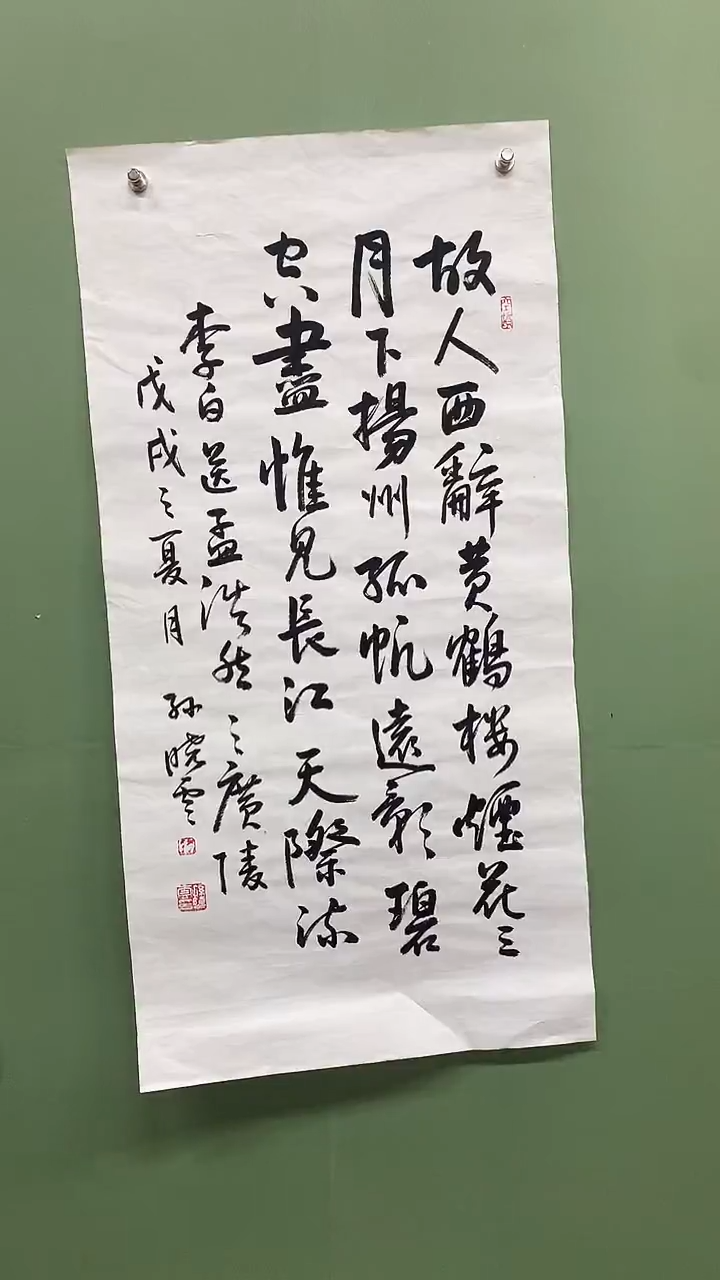 故人西辭黄鶴楼煙花三
月下揚州孤帆遠影碧
空盡惟見長江天際流
李白送孟浩然之廣陵
戊戌之夏月 孙晓雲